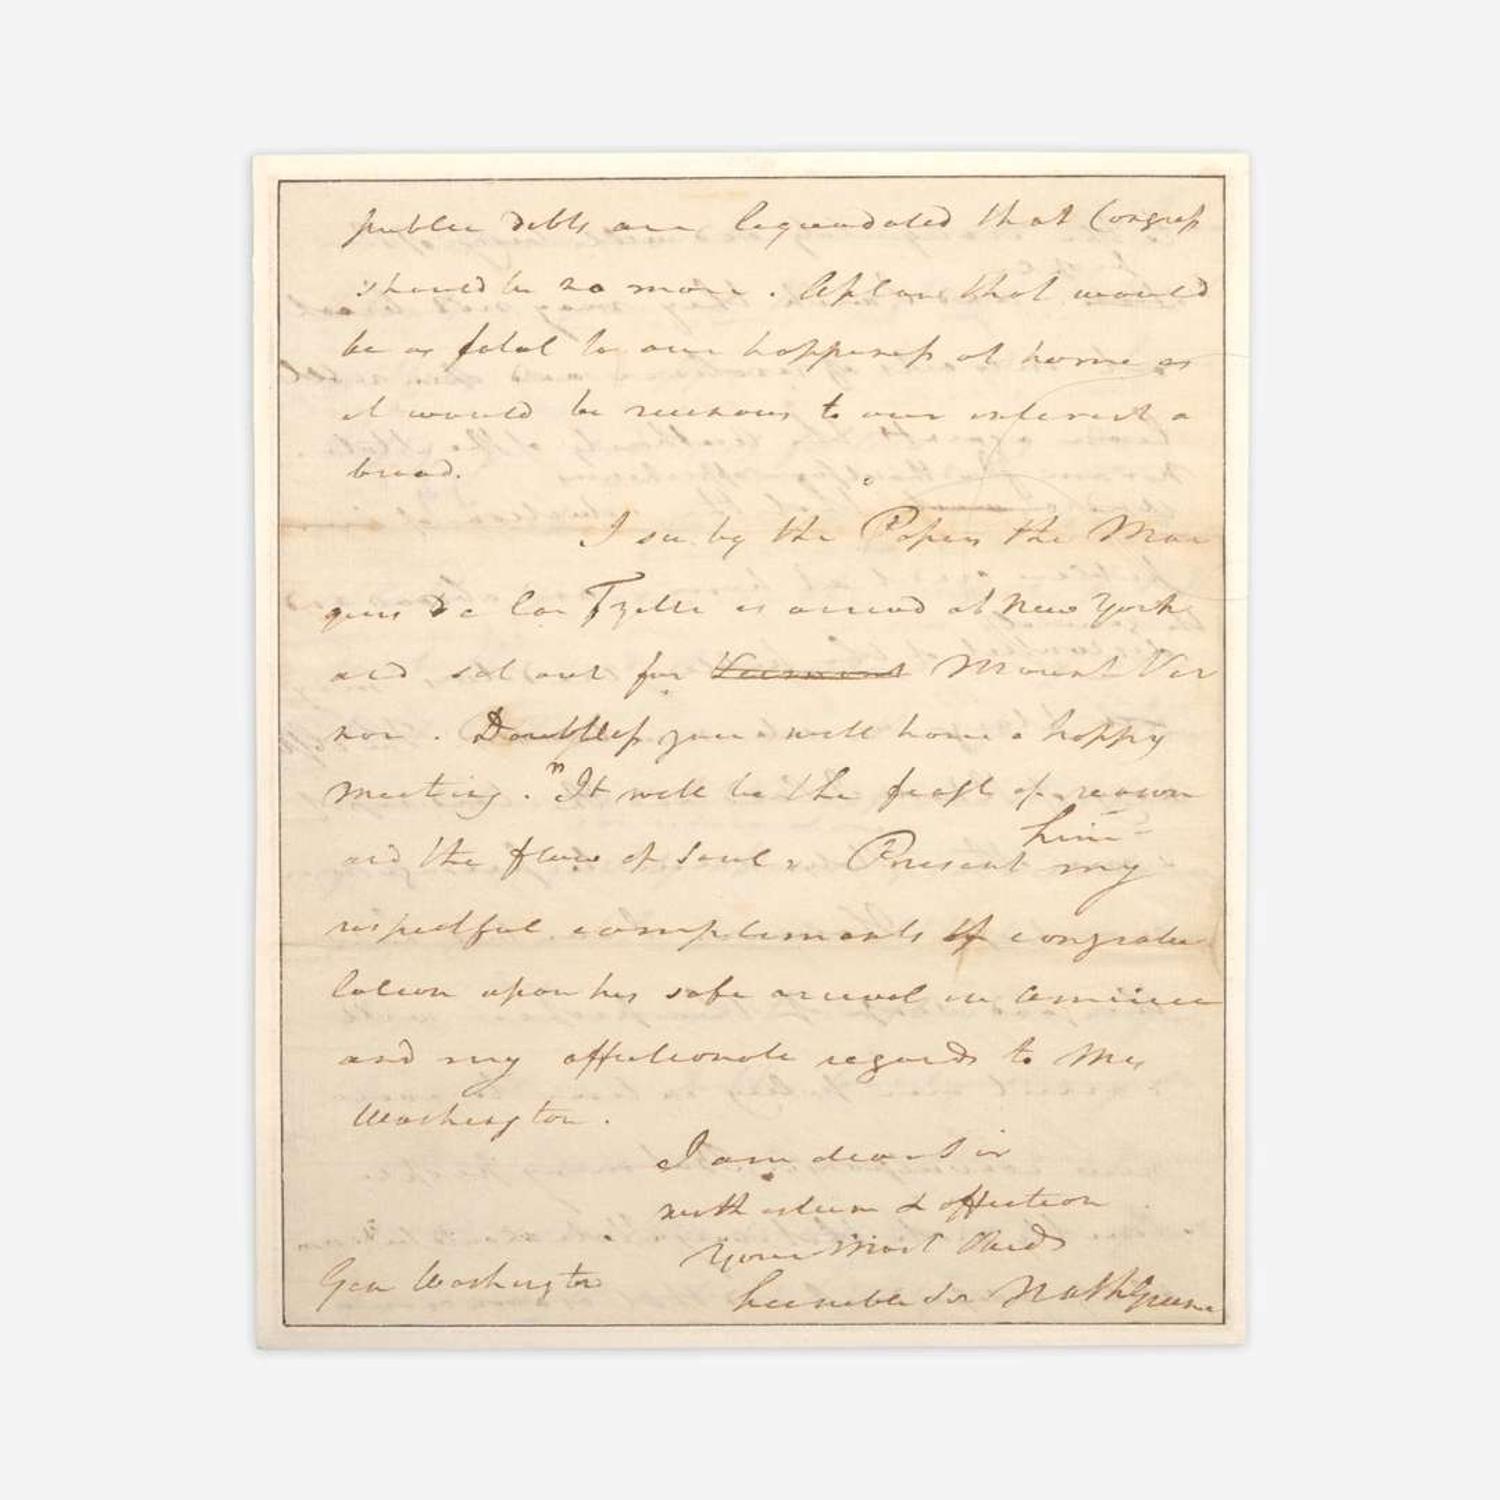 public debts are lequedated that Congress
should be no more. A plan that would
be as fatal to our happiness at home as
it would be ruinous to our interest a
broad.
I see by the Papers the Mar
quis de la Fyette is arrived at New York
and set out for Vermont Mount Ver
non. Doubtless you will have a happy
meeting. "It will be the feast of reason
and the flow of Soul" Present him my
respectful compliments of congratu
lation upon his safe arrival in America
and my affectionate regards to Mrs
Washington.
I am dear Sir
with esteem & affection
Your Most Obed
humble Sr NathGreene
Gen Washington